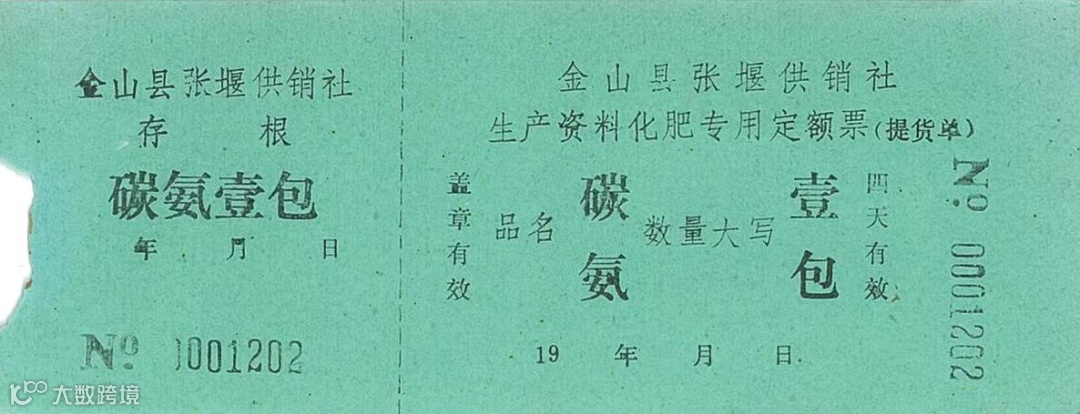 金山县张堰供销社
存 根
碳氨壹包
年 月 日
Nº 0001202
金山县张堰供销社
生产资料化肥专用定额票(提货单)
盖章有效
品名 碳氨 数量大写 壹包
四天有效
19 年 月 日
Nº 0001202
大数跨境